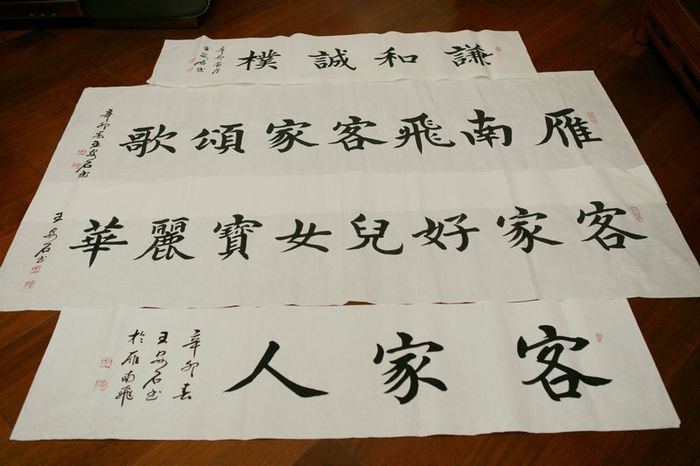 謙和誠樸
辛卯春月
王安石書
雁南飛客家頌歌
辛卯春王安石書
客家好兒女寶麗華
王安石書
客家人
辛卯春
王安石書
於雁南飛